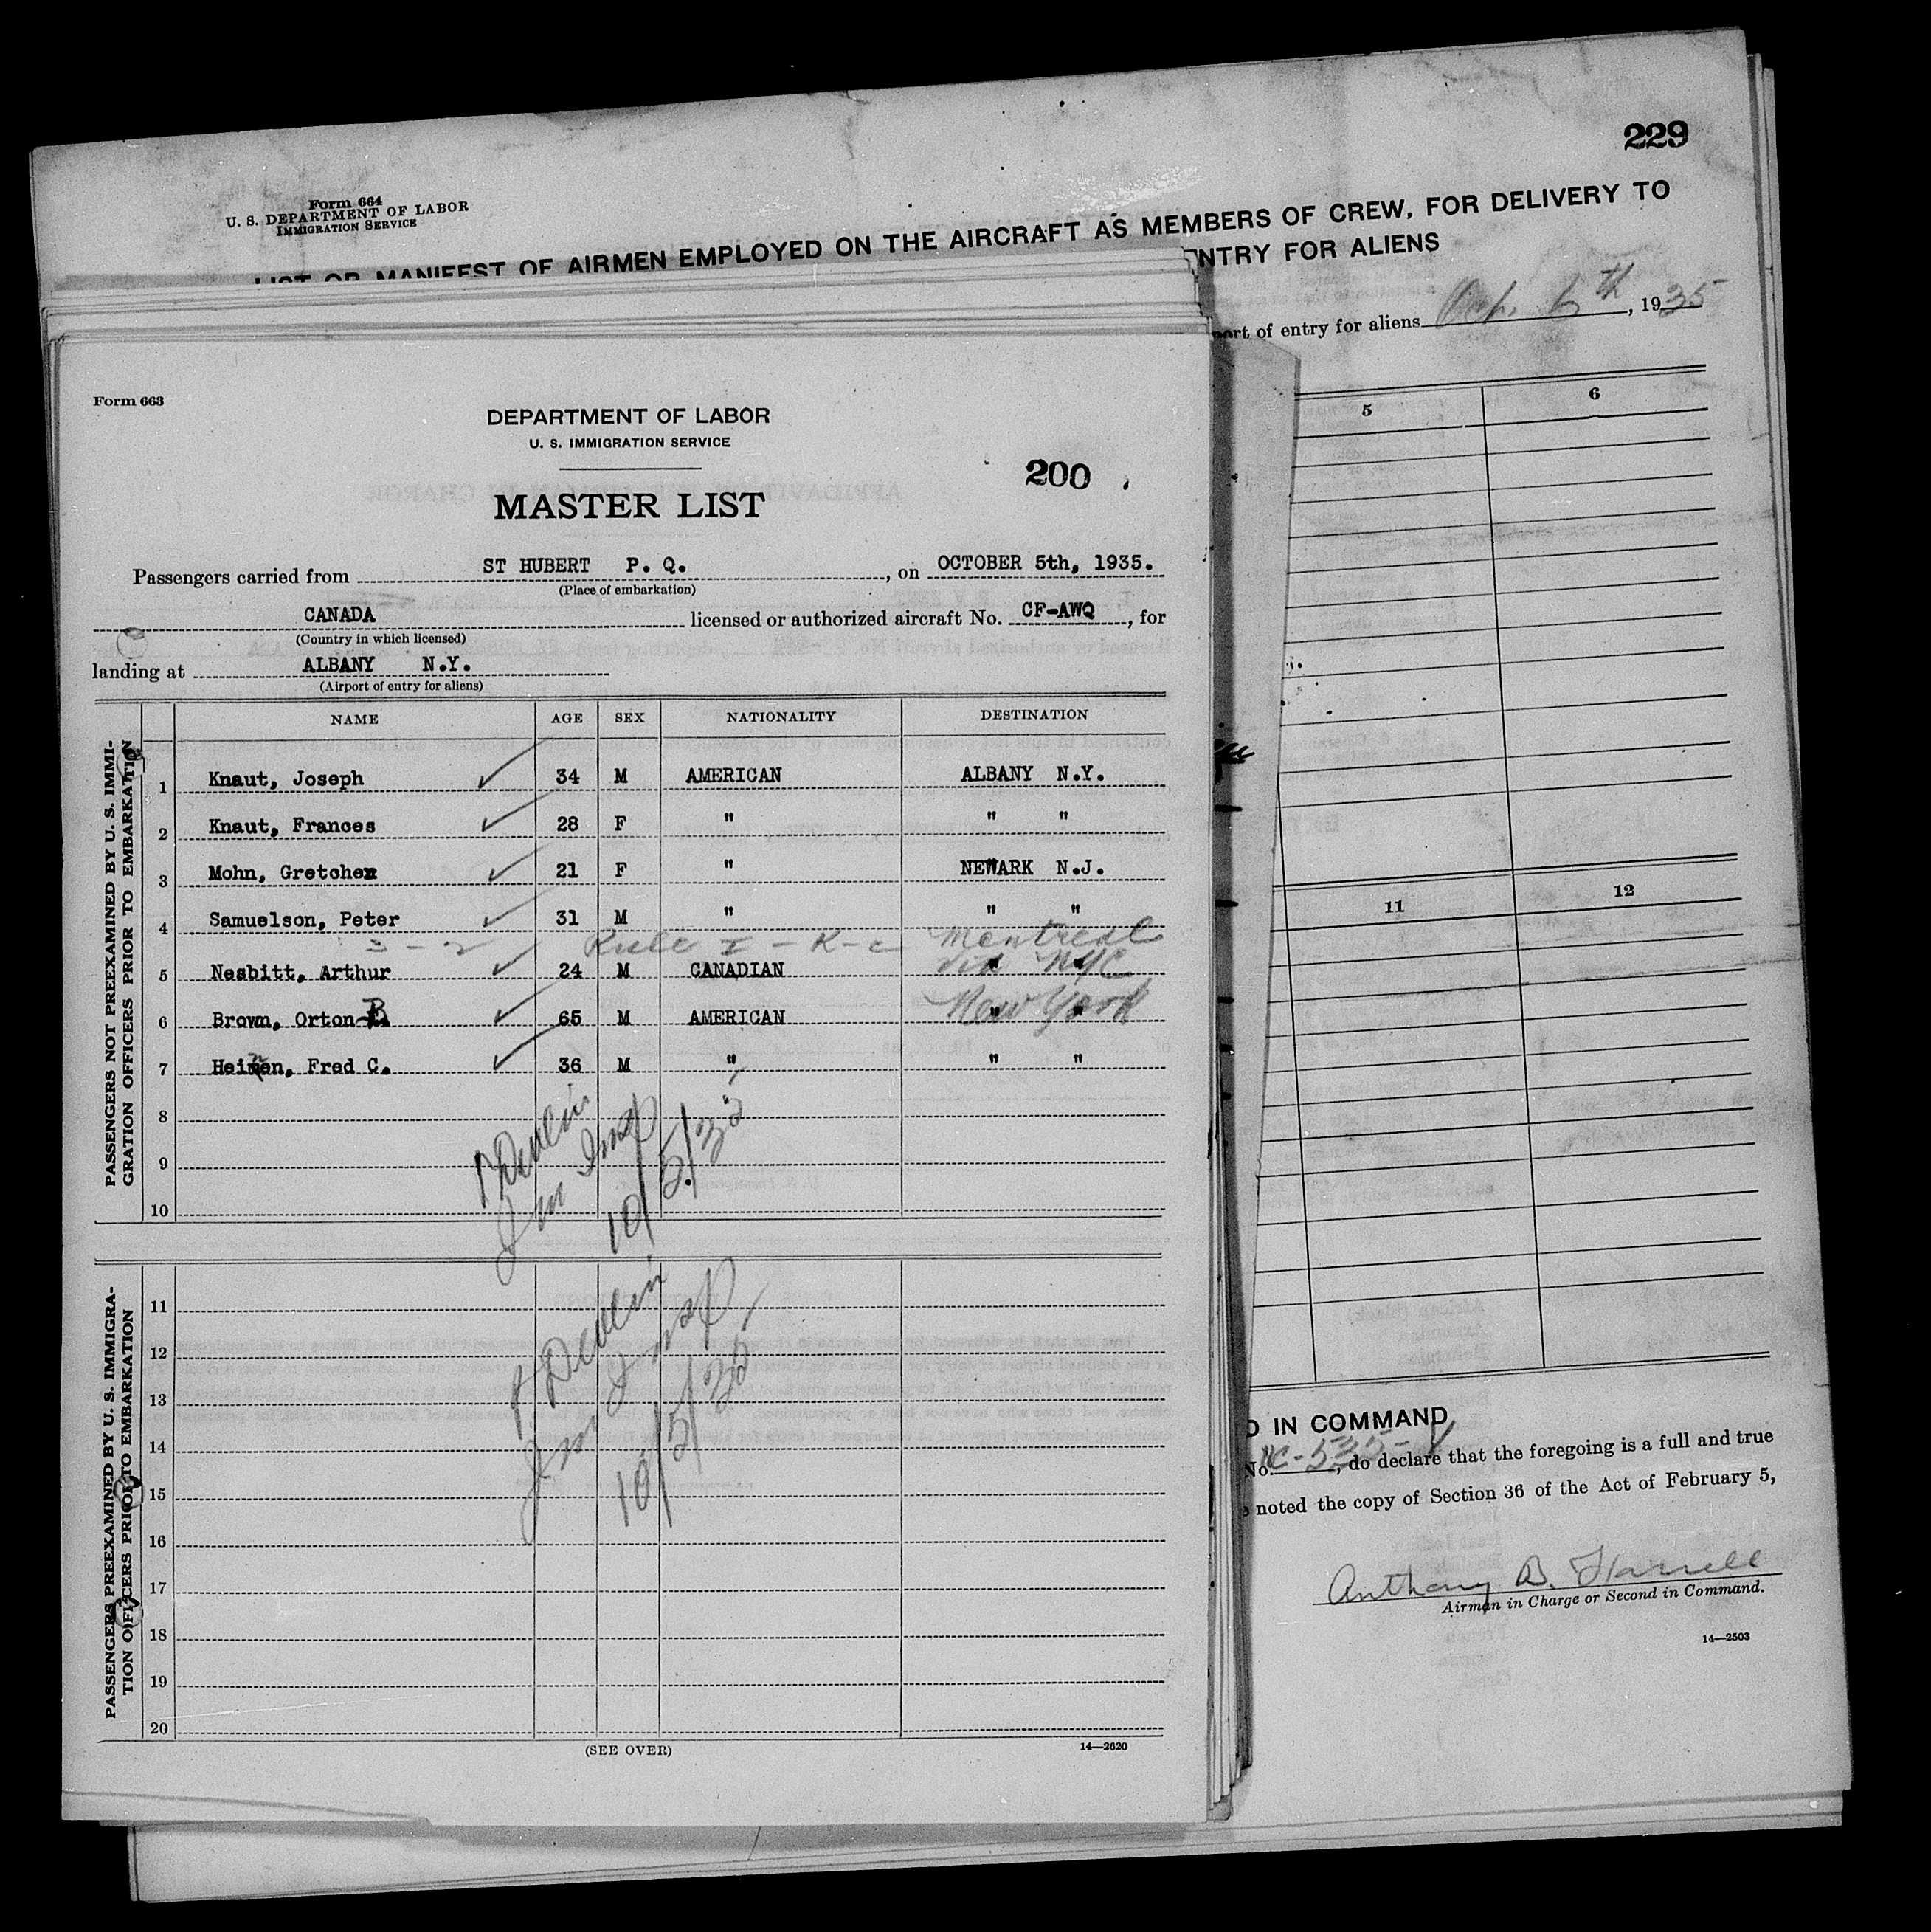 229
Form 664
U. S. DEPARTMENT OF LABOR
IMMIGRATION SERVICE
LIST OR MANIFEST OF AIRMEN EMPLOYED ON THE AIRCRAFT AS MEMBERS OF CREW, FOR DELIVERY TO
NTRY FOR ALIENS
port of entry for aliens Oct. 6th, 1935
5 6
11 12
D IN COMMAND
No. NC-535-V, do declare that the foregoing is a full and true
noted the copy of Section 36 of the Act of February 5,
Anthony B. Harrell
Airman in Charge or Second in Command.
14—2503
Form 663
DEPARTMENT OF LABOR
U. S. IMMIGRATION SERVICE
200
MASTER LIST
Passengers carried from ST HUBERT P. Q., on OCTOBER 5th, 1935.
(Place of embarkation)
CANADA licensed or authorized aircraft No. CF-AWQ, for
(Country in which licensed)
landing at ALBANY N.Y.
(Airport of entry for aliens)
NAME AGE SEX NATIONALITY DESTINATION
PASSENGERS NOT PREEXAMINED BY U. S. IMMI-
GRATION OFFICERS PRIOR TO EMBARKATION
1 Knaut, Joseph 34 M AMERICAN ALBANY N.Y.
2 Knaut, Frances 28 F " " "
3 Mohn, Gretchen 21 F " NEWARK N.J.
4 Samuelson, Peter 31 M " " "
3-2 Rule I-K-c Montreal
5 Nesbitt, Arthur 24 M CANADIAN via NYC
6 Brown, Orton B 65 M AMERICAN New York
7 Heinen, Fred C. 36 M " " "
8
9
10
P Devlin
Im Insp
10/5/35
PASSENGERS PREEXAMINED BY U. S. IMMIGRA-
TION OFFICERS PRIOR TO EMBARKATION
11
12
13
14
15
16
17
18
19
20
P. Devlin
Im Insp
10/5/35
(SEE OVER) 14—2620